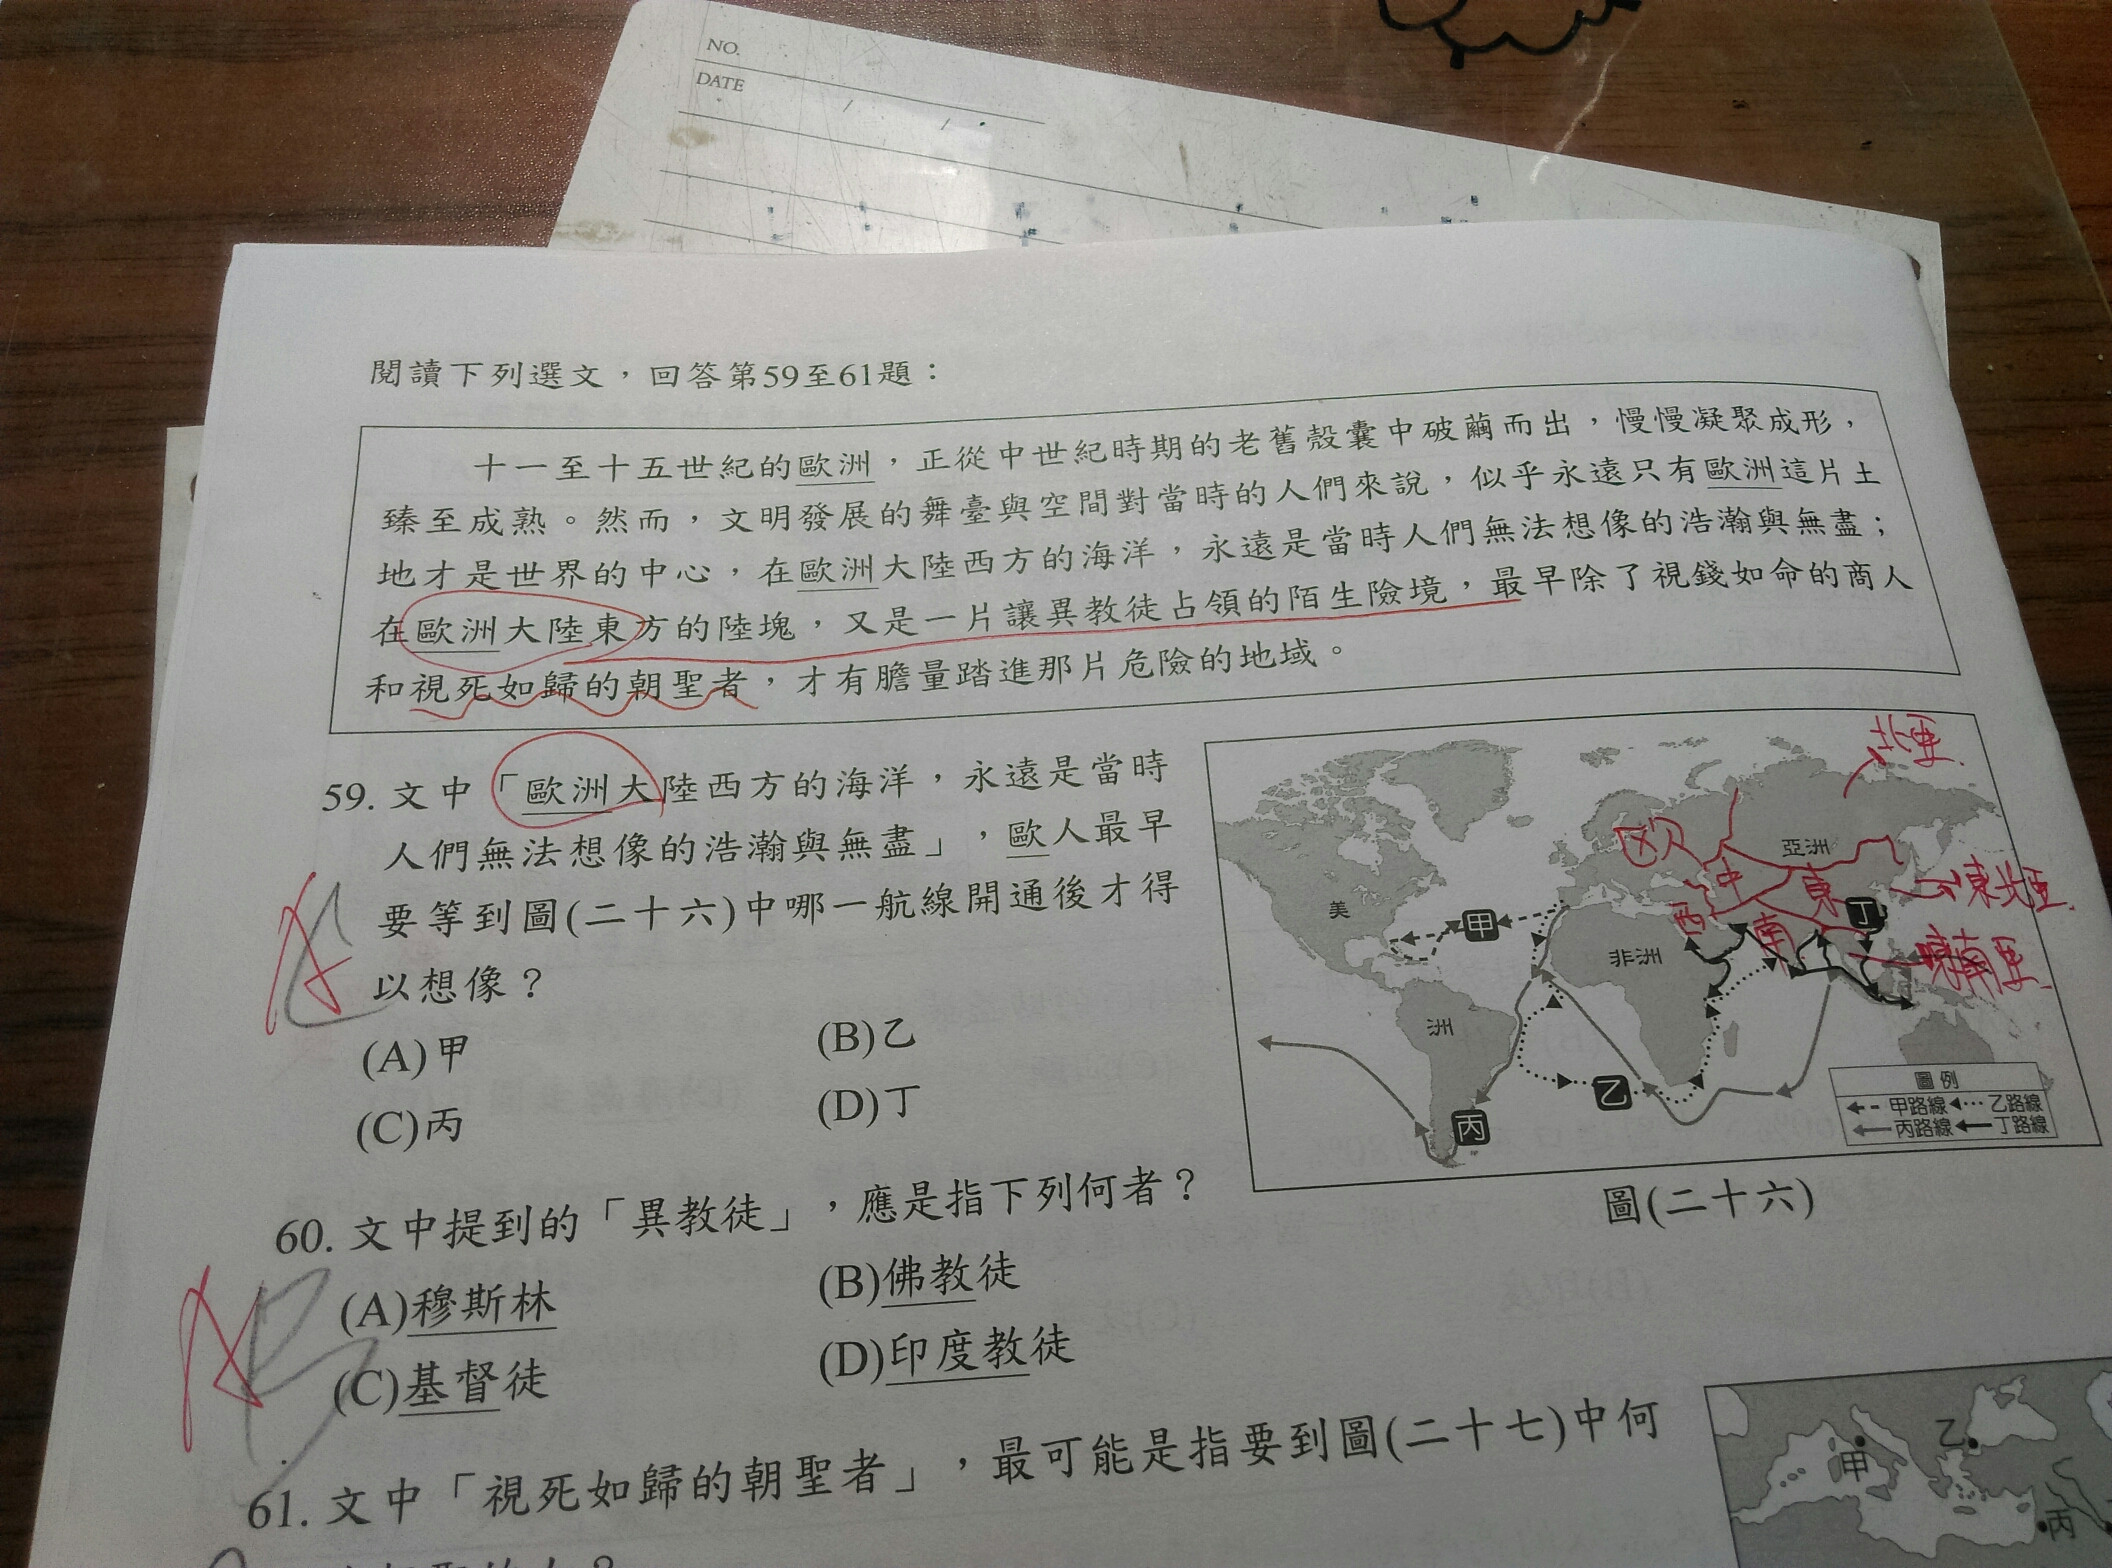 NO.
DATE
閱讀下列選文，回答第59至61題：
十一至十五世紀的歐洲，正從中世紀時期的老舊殼囊中破繭而出，慢慢凝聚成形，
臻至成熟。然而，文明發展的舞臺與空間對當時的人們來說，似乎永遠只有歐洲這片土
地才是世界的中心，在歐洲大陸西方的海洋，永遠是當時人們無法想像的浩瀚與無盡；
在歐洲大陸東方的陸塊，又是一片讓異教徒占領的陌生險境，最早除了視錢如命的商人
和視死如歸的朝聖者，才有膽量踏進那片危險的地域。
59. 文中「歐洲大陸西方的海洋，永遠是當時
人們無法想像的浩瀚與無盡」，歐人最早
要等到圖(二十六)中哪一航線開通後才得
以想像？
A
(A)甲
(B)乙
(C)丙
(D)丁
北亞
欧
亞洲
中
東
東北亞
西
南
丁
東南亞
美
甲
非洲
洲
乙
丙
圖例
甲路線 乙路線
丙路線 丁路線
圖(二十六)
60. 文中提到的「異教徒」，應是指下列何者？
A
(A)穆斯林
(B)佛教徒
(C)基督徒
(D)印度教徒
61. 文中「視死如歸的朝聖者」，最可能是指要到圖(二十七)中何
甲
乙
丙